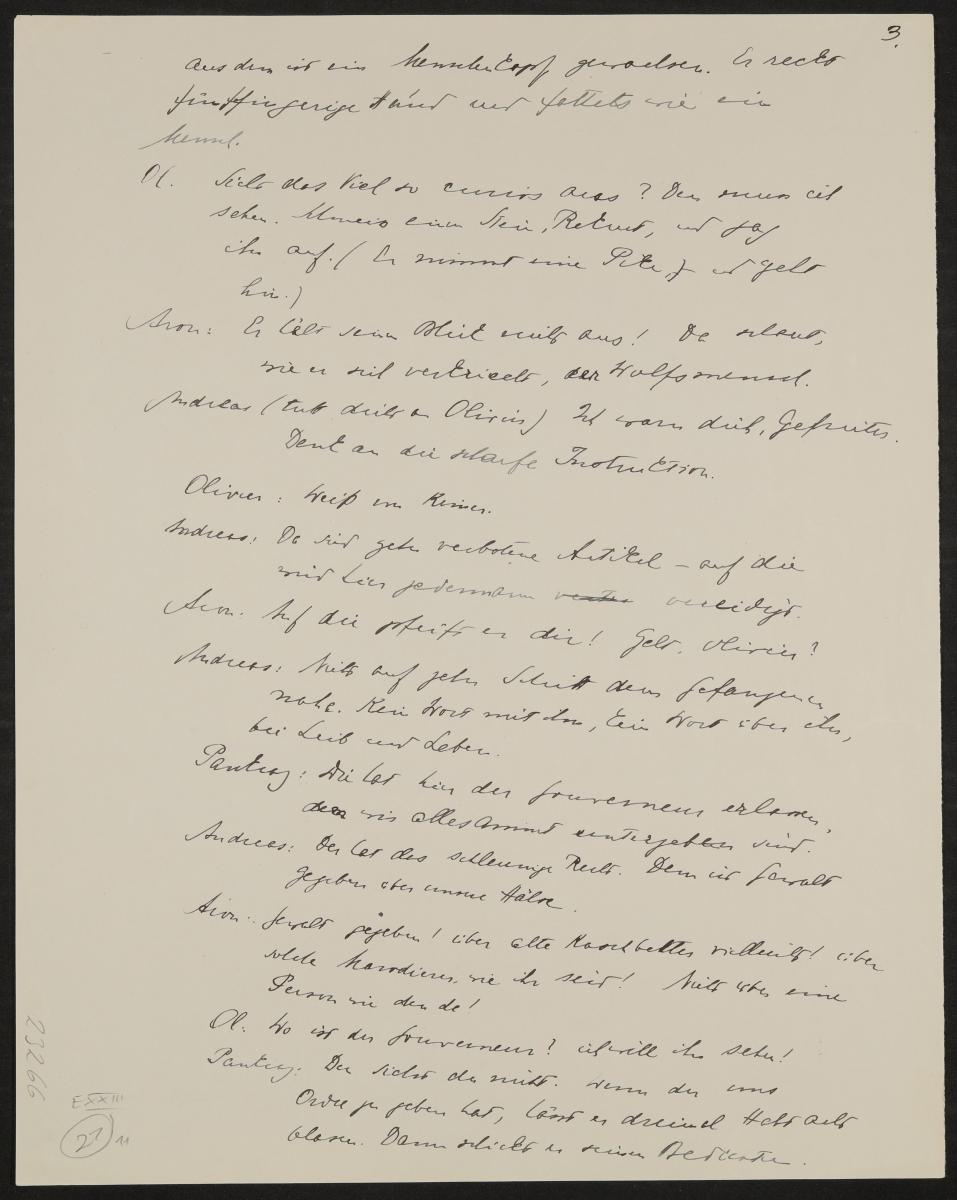 3.
aus dem ist ein Menschenkopf gewachsen. Er reckt
fünffingerige Händ und fettets wie ein
Mensch.
Ol. Sieht das Viel so curios aus? Den muss ich
sehen. Schmeiss einen Stein, Rekrut, und jag
ihn auf. (Er nimmt eine Pike, und geht
hin.)
Aron: Er hält seinen Blick nicht aus! Da schaut,
wie er sich verkriecht, der Wolfsmensch.
Andreas (tritt dicht an Olivier) Ich warn dich, Gefreiter.
Denk an die scharfe Instruction.
Olivier: Weiss von keiner.
Andreas: Da sind zehn verbotene Artikel – auf die
wird hier jedermann vereidigt.
Aron: Auf die pfeift er dir! Gelt, Olivier?
Andreas: Nicht auf zehn Schritt dem Gefangenen
nahe. Kein Wort mit ihm, kein Wort über ihn,
bei Leib und Leben.
Pankraz: Die hat hier der Gouverneur erlassen,
dem wir allesammt untergeben sind.
Andreas: Der hat das schleunige Recht. Dem ist Gewalt
gegeben über unsere Hälse.
Aron: Gewalt gegeben! über alte vielleicht! über
solche Marodierer, wie ihr seid! Nicht über eine
Person wie den da!
Ol. Wo ist der Gouverneur? ich will ihn sehen!
Pankraz: Den siehst du nicht. wenn der uns
Ordre zu geben hat, lässt er dreimal Habt acht
blasen. Dann schickt er seinen Bedienten.
23266
EXXIII
21 11